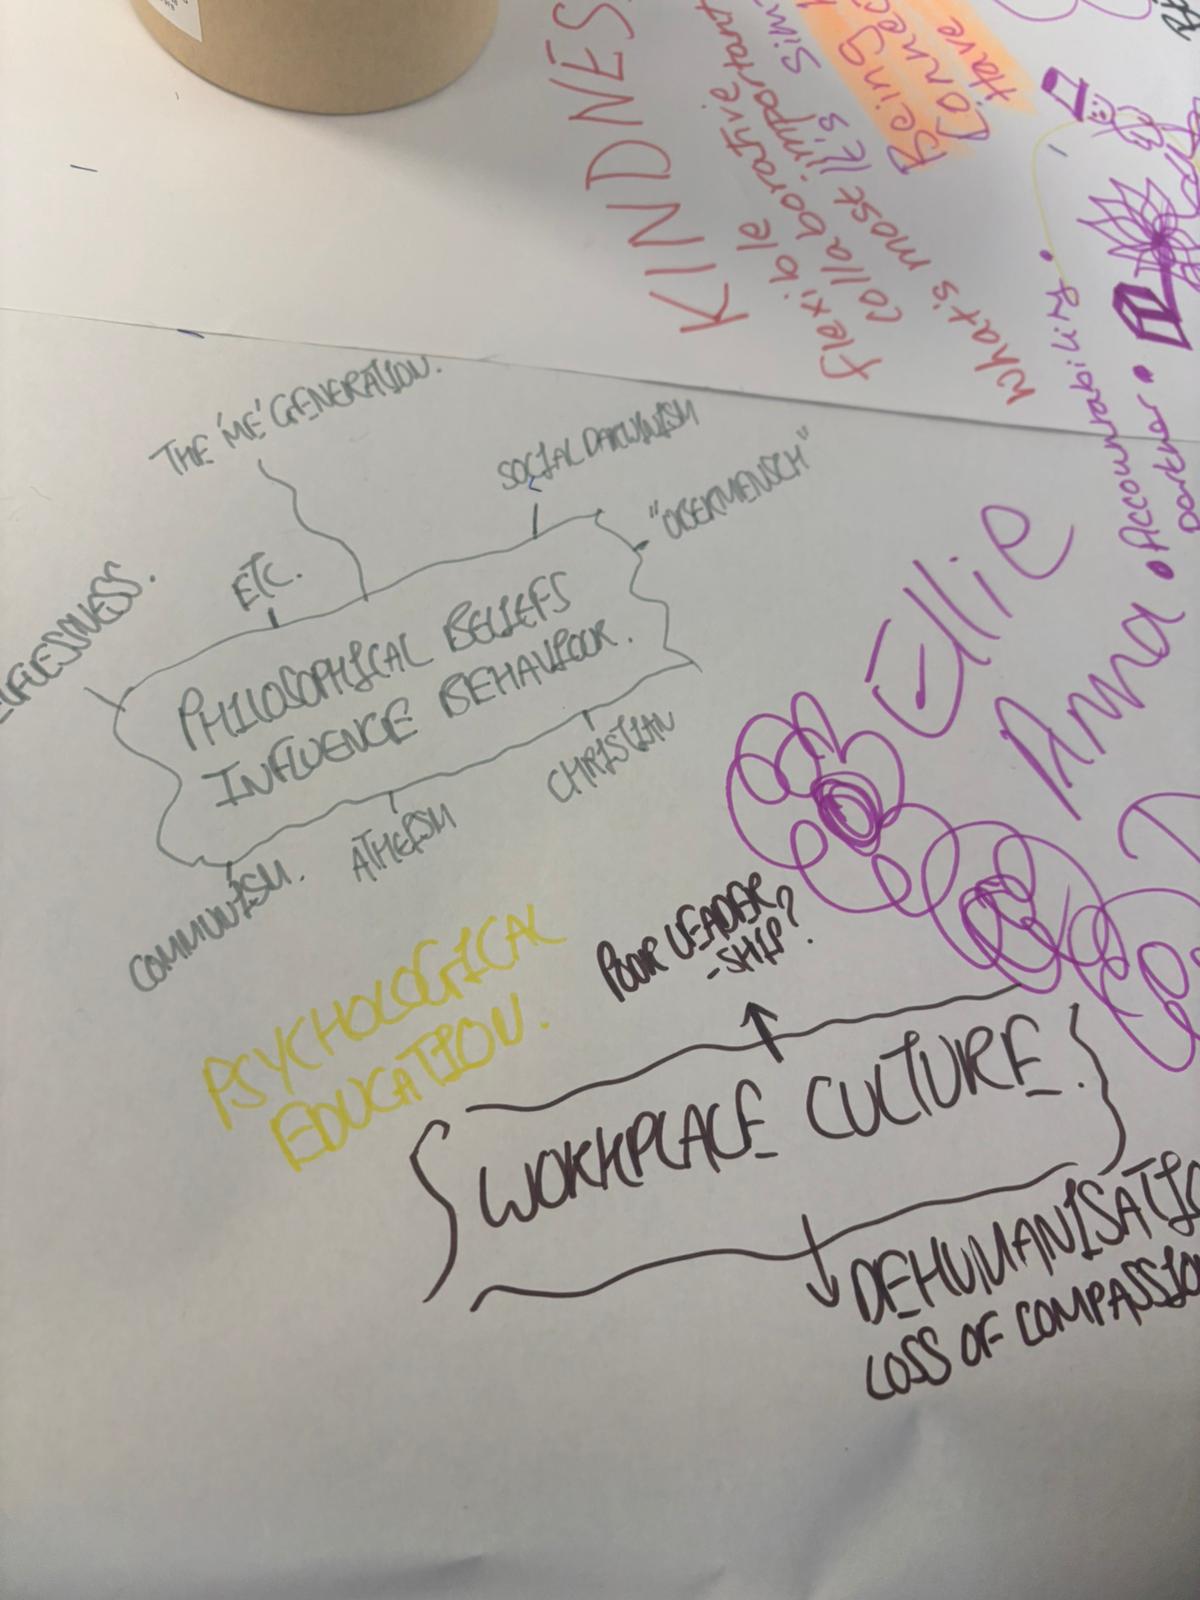 KINDNES
flexible
collaborative
what's most important
It's
Being
Connec
Have
Accountability
Accountability
partner
THE 'ME' GENERATION.
SOCIAL DARWINISM
"OBERMENSCH"
ETC.
PHILOSOPHICAL BELIEFS
INFLUENCE BEHAVIOUR.
CHRISTIAN
ATHEISM
COMMUNISM.
Ellie
Anna
PSYCHOLOGICAL
EDUCATION.
POOR LEADER
-SHIP?
WORKPLACE CULTURE.
DEHUMANISATIO
LOSS OF COMPASSION